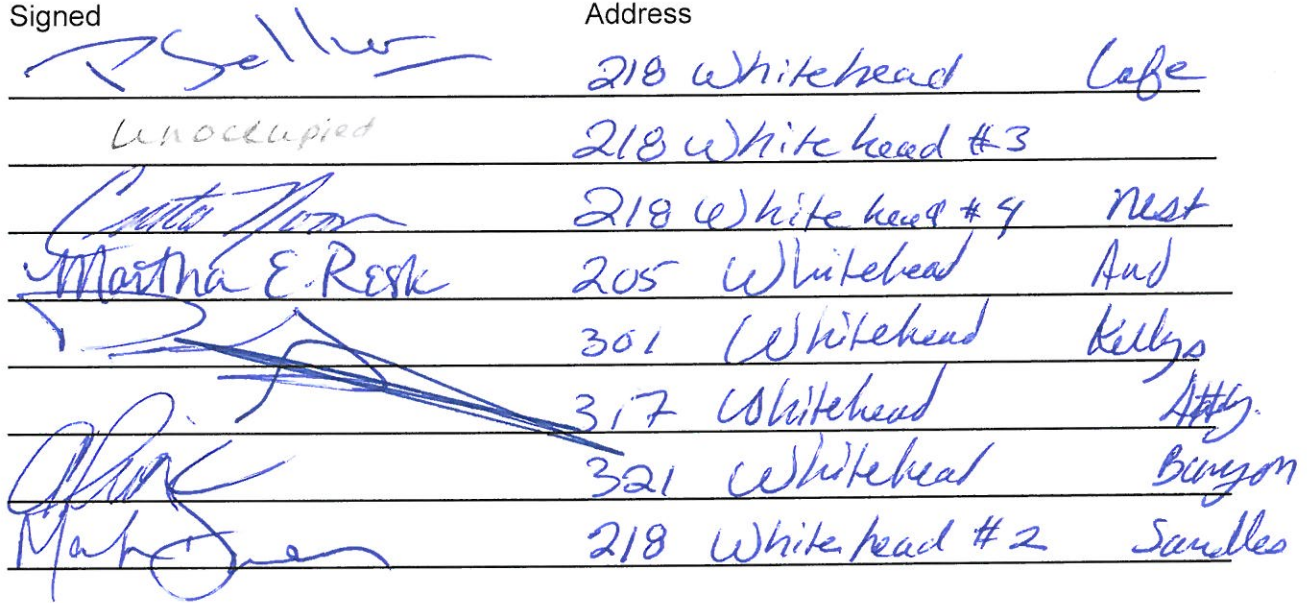 Signed Address
218 Whitehead Cafe
Unoccupied 218 Whitehead #3
218 Whitehead #4 Nest
Martha E. Resk 205 Whitehead And
301 Whitehead Kellys
317 Whitehead Atty.
321 Whitehead Banyon
218 Whitehead #2 Sandles